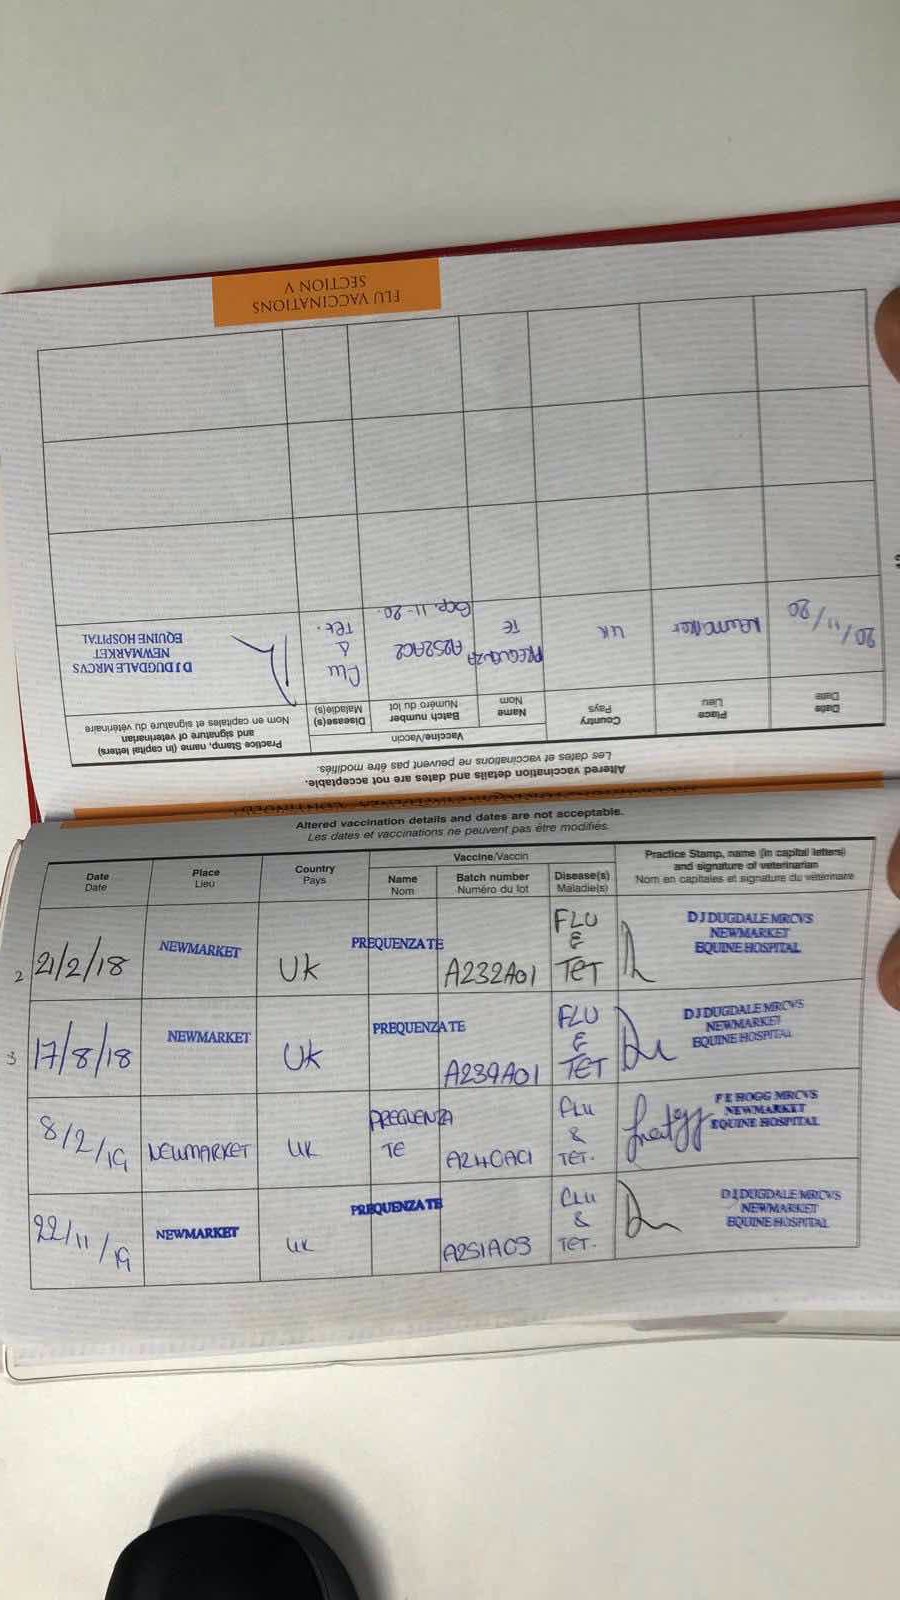 Altered vaccination details and dates are not acceptable.
Les dates et vaccinations ne peuvent pas être modifiés.
Date
Date
Place
Lieu
Country
Pays
Vaccine/Vaccin
Name
Nom
Batch number
Numéro du lot
Disease(s)
Maladie(s)
Practice Stamp, name (in capital letters)
and signature of veterinarian
Nom en capitales et signature du vétérinaire
2 21/2/18 NEWMARKET UK PREQUENZA TE A232A01 FLU & TET
D J DUGDALE MRCVS
NEWMARKET
EQUINE HOSPITAL
3 17/8/18 NEWMARKET UK PREQUENZA TE A239A01 FLU & TET
D J DUGDALE MRCVS
NEWMARKET
EQUINE HOSPITAL
8/2/19 NEWMARKET UK PREQUENZA TE A240A01 FLU & TET.
F E HOGG MRCVS
NEWMARKET
EQUINE HOSPITAL
22/11/19 NEWMARKET UK PREQUENZA TE A251A03 FLU & TET.
D J DUGDALE MRCVS
NEWMARKET
EQUINE HOSPITAL
Altered vaccination details and dates are not acceptable.
Les dates et vaccinations ne peuvent pas être modifiés.
Date
Date
Place
Lieu
Country
Pays
Vaccine/Vaccin
Name
Nom
Batch number
Numéro du lot
Disease(s)
Maladie(s)
Practice Stamp, name (in capital letters)
and signature of veterinarian
Nom en capitales et signature du vétérinaire
20/11/20 Newmarket UK PREQUENZA TE A252AC2 Exp. 11-20. Flu & Tet.
D J DUGDALE MRCVS
NEWMARKET
EQUINE HOSPITAL
FLU VACCINATIONS
SECTION V